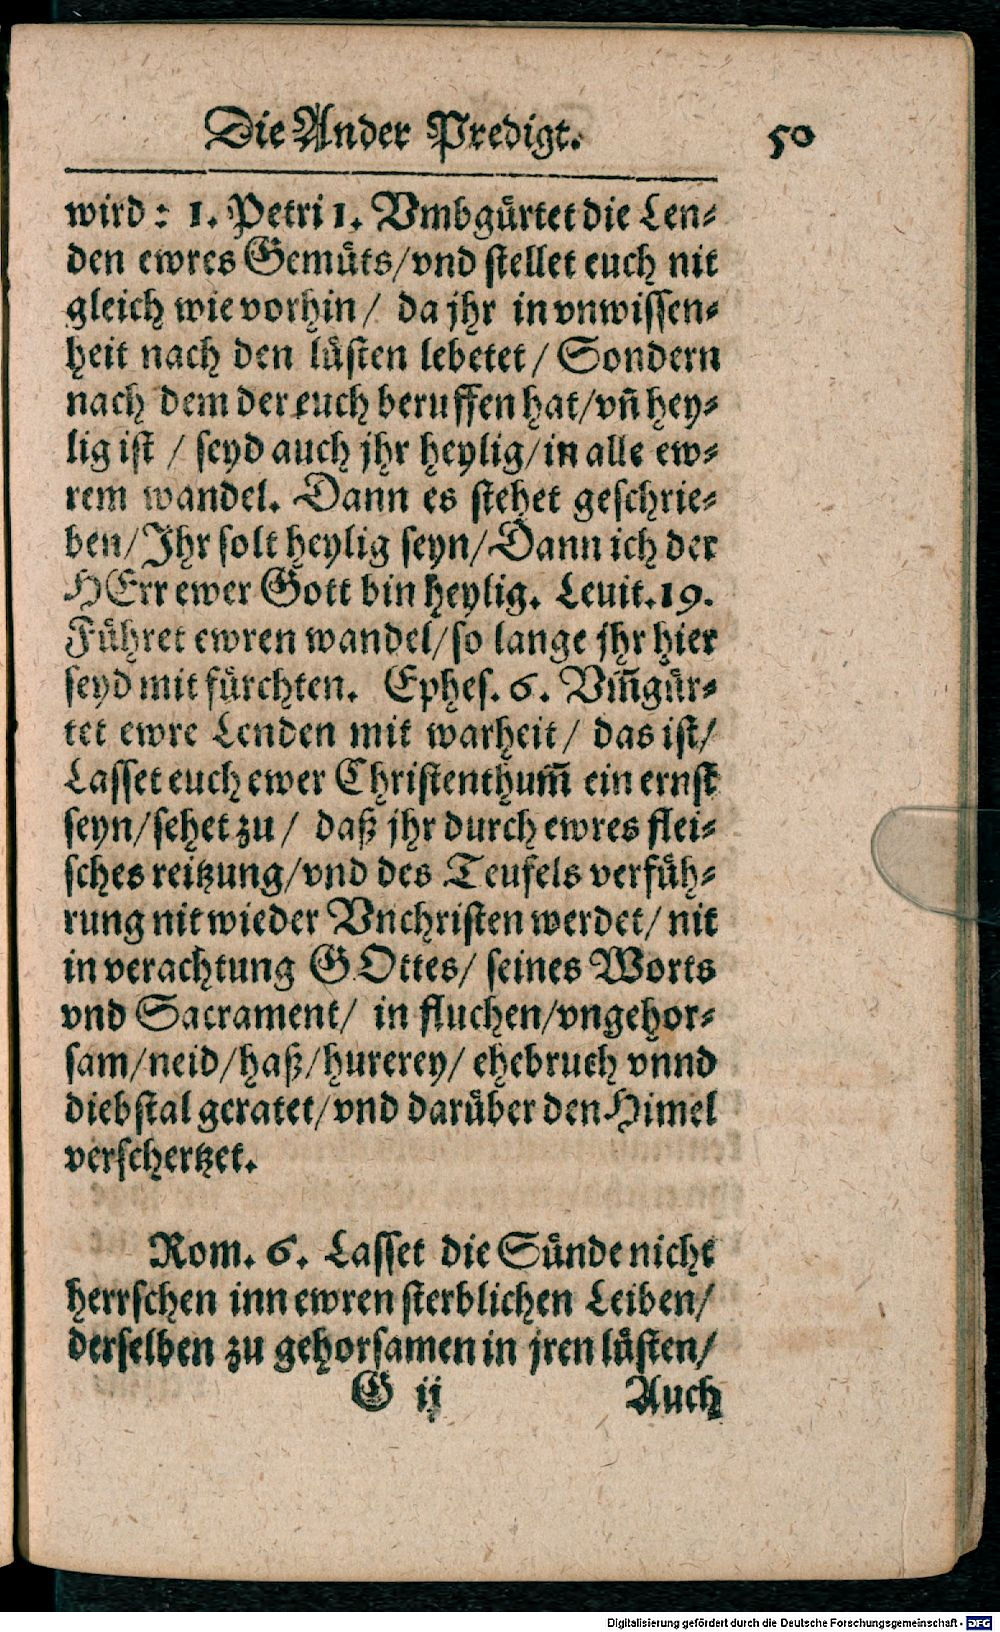 Die Ander Predigt. 50
wird: 1. Petri 1. Vmbgürtet die Len⸗
den ewres Gemüts/vnd stellet euch nit
gleich wie vorhin/ da jhr in vnwissen⸗
heit nach den lüsten lebetet/ Sondern
nach dem der euch beruffen hat/vn̄ hey⸗
lig ist / seyd auch jhr heylig/in alle ew⸗
rem wandel. Dann es stehet geschrie⸗
ben/Ihr solt heylig seyn/Dann ich der
HErr ewer Gott bin heylig. Leuit.19.
Führet ewren wandel/so lange jhr hier
seyd mit fürchten. Ephes. 6. Vm̄gür⸗
tet ewre Lenden mit warheit/ das ist/
Lasset euch ewer Christenthum̄ ein ernst
seyn/sehet zu/ daß jhr durch ewres flei⸗
sches reitzung/vnd des Teufels verfüh⸗
rung nit wieder Vnchristen werdet/ nit
in verachtung GOttes/ seines Worts
vnd Sacrament/ in fluchen/vngehor⸗
sam/neid/haß/hurerey/ ehebruch vnnd
diebstal geratet/vnd darüber den Himel
verschertzet.
Rom. 6. Lasset die Sünde nicht
herrschen inn ewren sterblichen Leiben/
derselben zu gehorsamen in jren lüsten/
G ij Auch
Digitalisierung gefördert durch die Deutsche Forschungsgemeinschaft - DFG